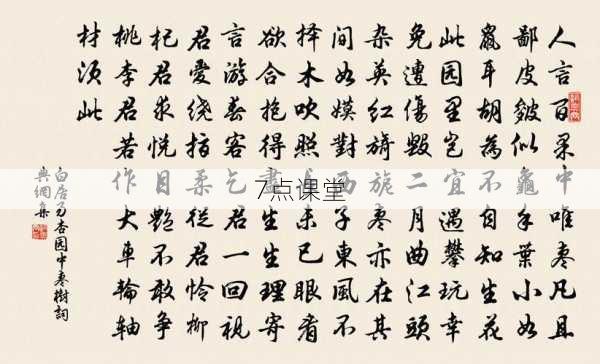 人言百果中唯枣凡且
鄙皮皴似龜手葉小如
鼠耳胡為不自知生花
此园里岂宜遇攀玩幸
免遭傷毀二月曲江頭
杂英红旖旎枣亦在其
间如嫫對西子東風不
择木吹照长未已眼看
欲合抱得盡生生理寄
言游春客乞君一回視
君愛绕指柔從君怜柳
杞君求悦目艷不敢争
桃李君若作大车輪轴
材须此
白居易杏园中枣樹詞
7点课堂